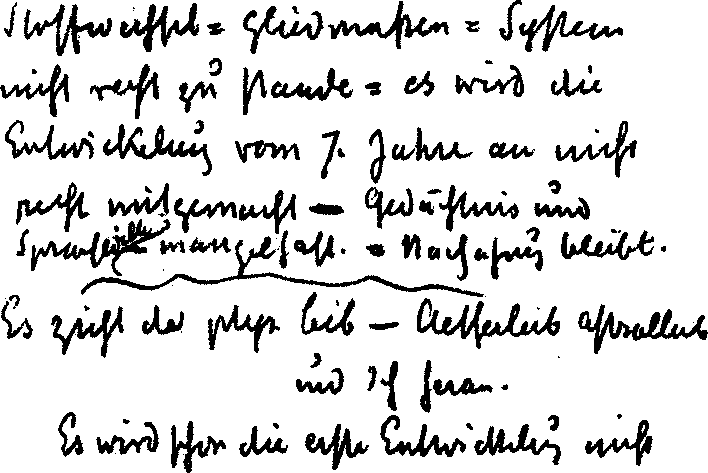 Stoffwechsel= Gliedmaßen= System
nicht recht zu stande = es wird die
Entwickelung vom 7. Jahre an nicht
recht mitgemacht — Gedächtnis und
Sprache mangelhaft. = Nachahmung bleibt.
Es zieht der phys. Leib — Aetherleib astralleib
und Ich heran.
Es wird schon die erste Entwickelung nicht